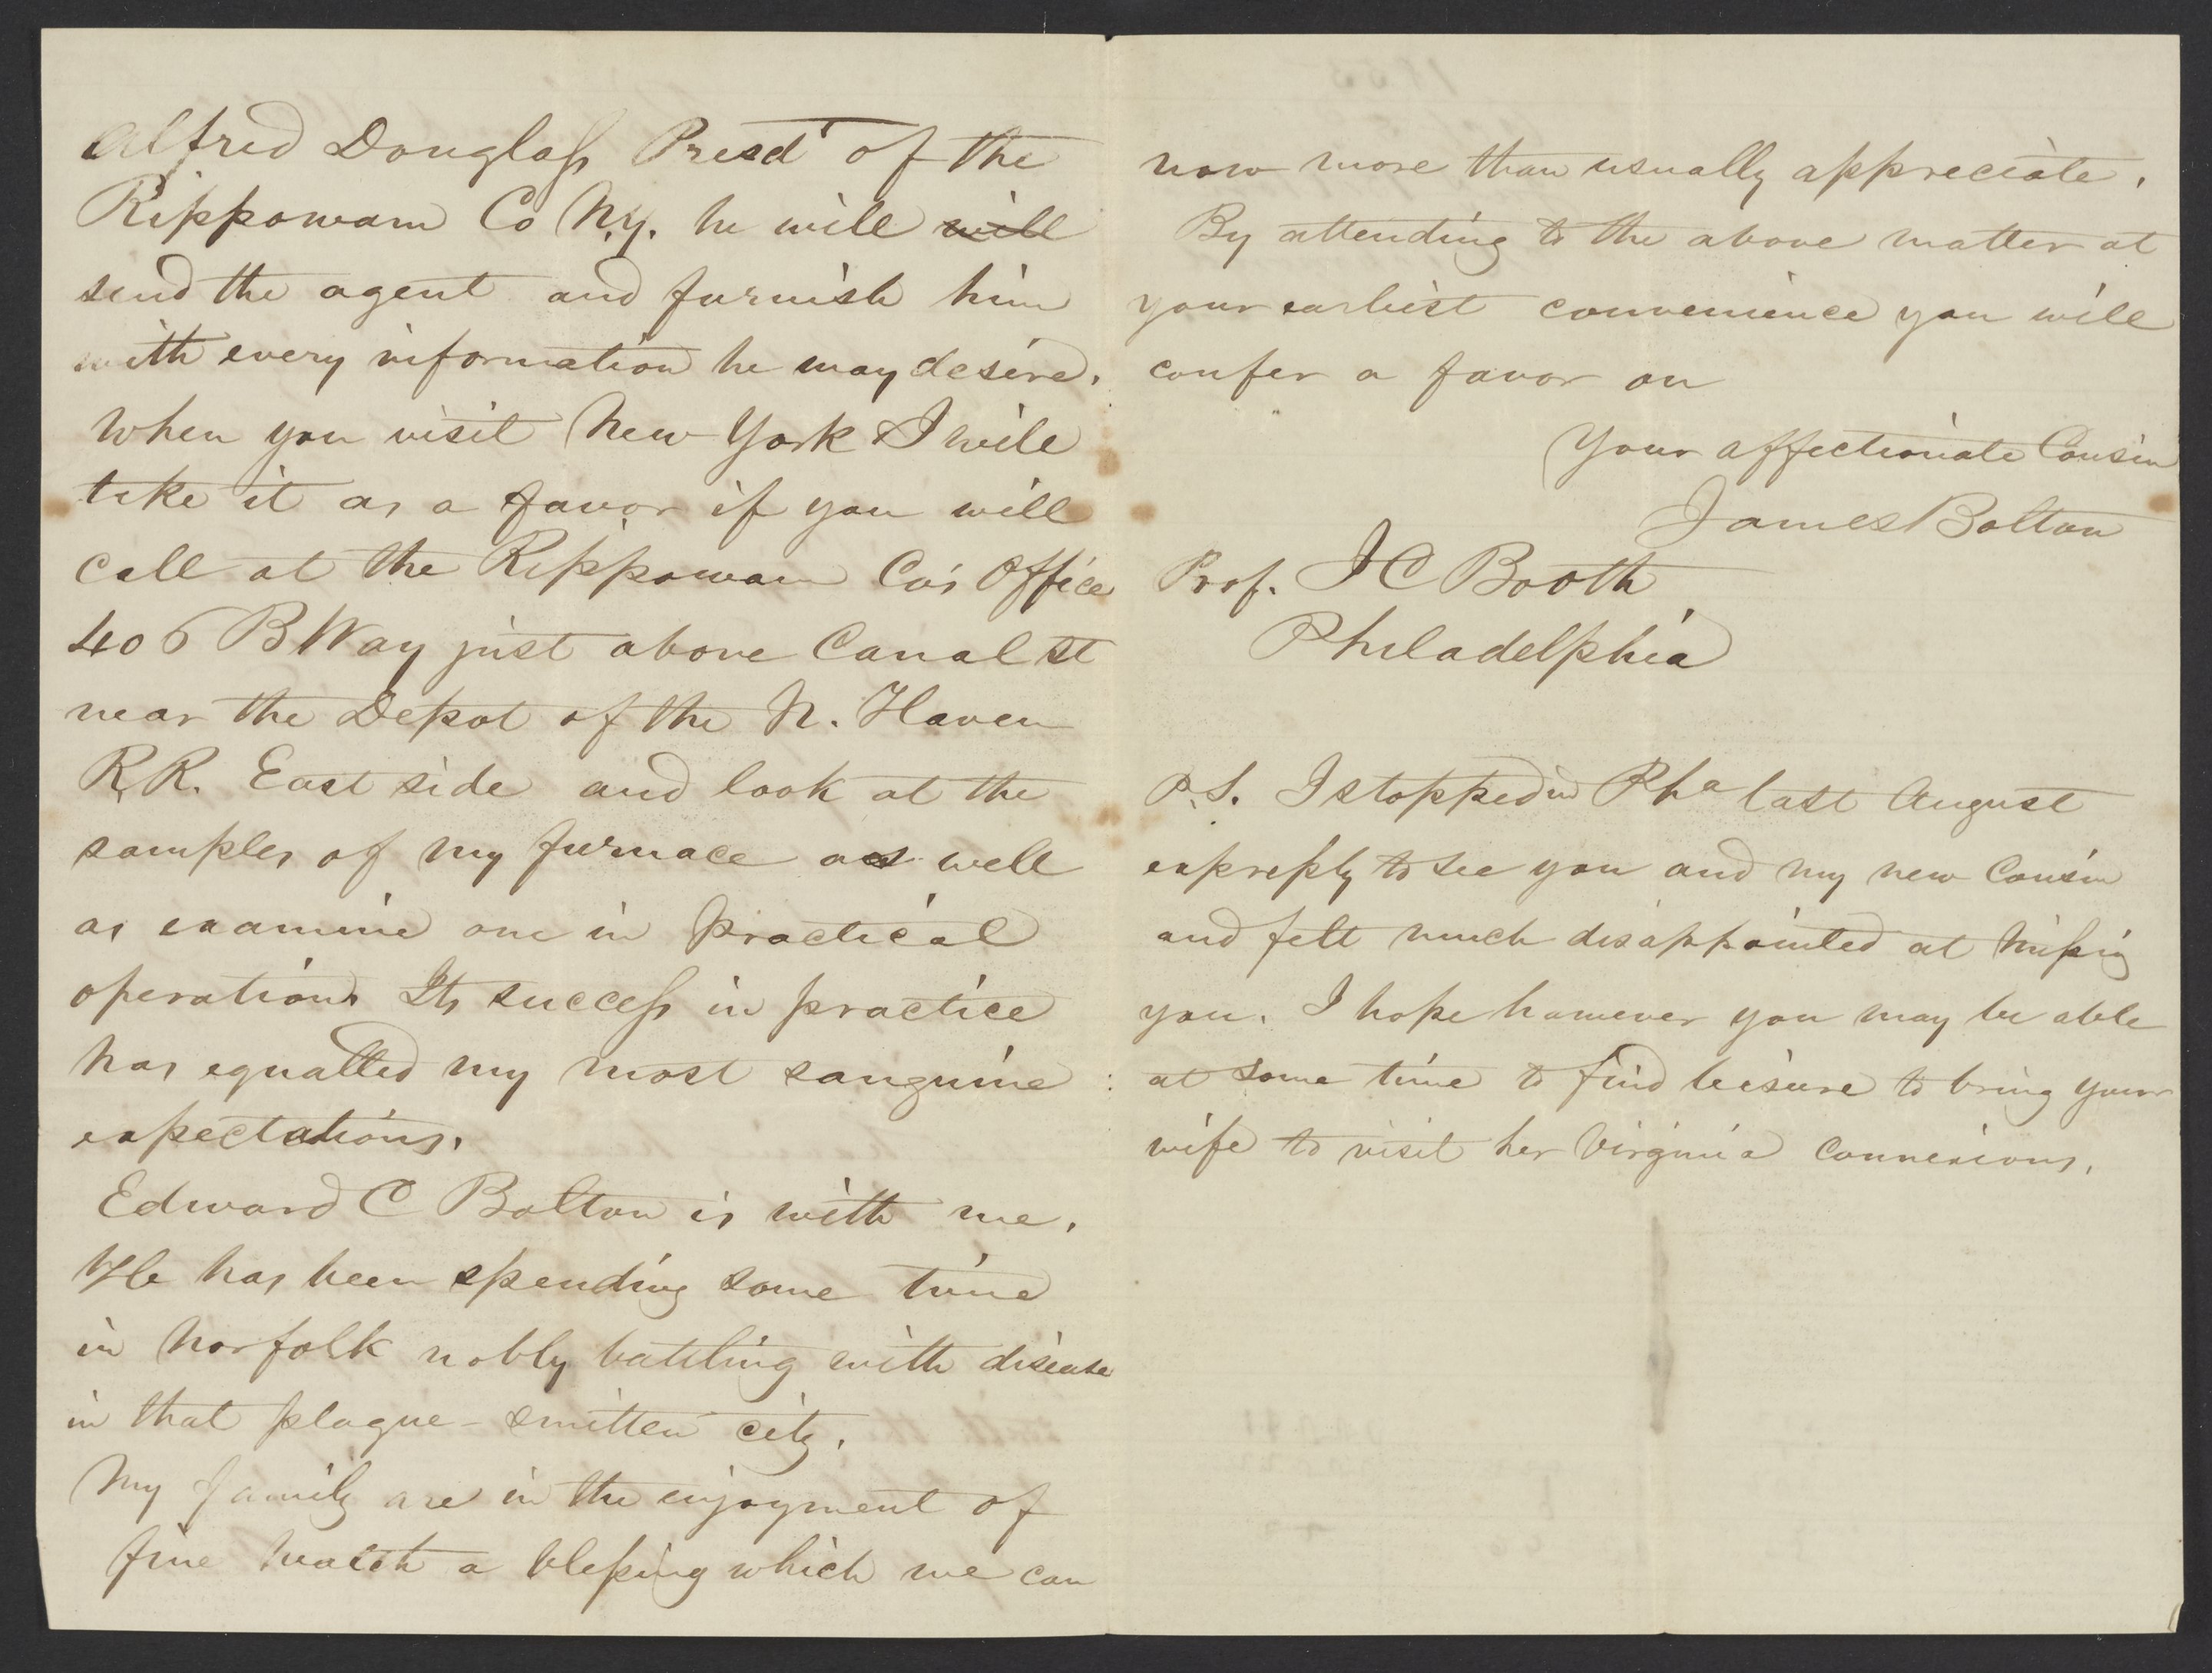 Alfred Douglass Presdt of the
Rippowam Co N.Y. he will will
send the agent and furnish him
with every information he may desire.
When you visit New York I will
take it as a favor if you will
call at the Rippowam Co's Office
406 BWay just above Canal st
near the Depot of the N. Haven
R.R. East side and look at the
samples of my furnace as well
as examine one in practical
operation. Its success in practice
has equalled my most sanguine
expectations.
Edward C Bolton is with me.
He has been spending some time
in Norfolk nobly battling with disease
in that plague-smitten city.
My family are in the enjoyment of
fine health a blessing which we can
now more than usually appreciate.
By attending to the above matter at
your earliest convenience you will
confer a favor on
Your affectionate Cousin
James Bolton
Prof. J C Booth
Philadelphia
P.S. I stopped in Pha last August
expressly to see you and my new Cousin
and felt much disappointed at missig
you. I hope however you may be able
at some time to find leisure to bring your
wife to visit her Virginia connexions.